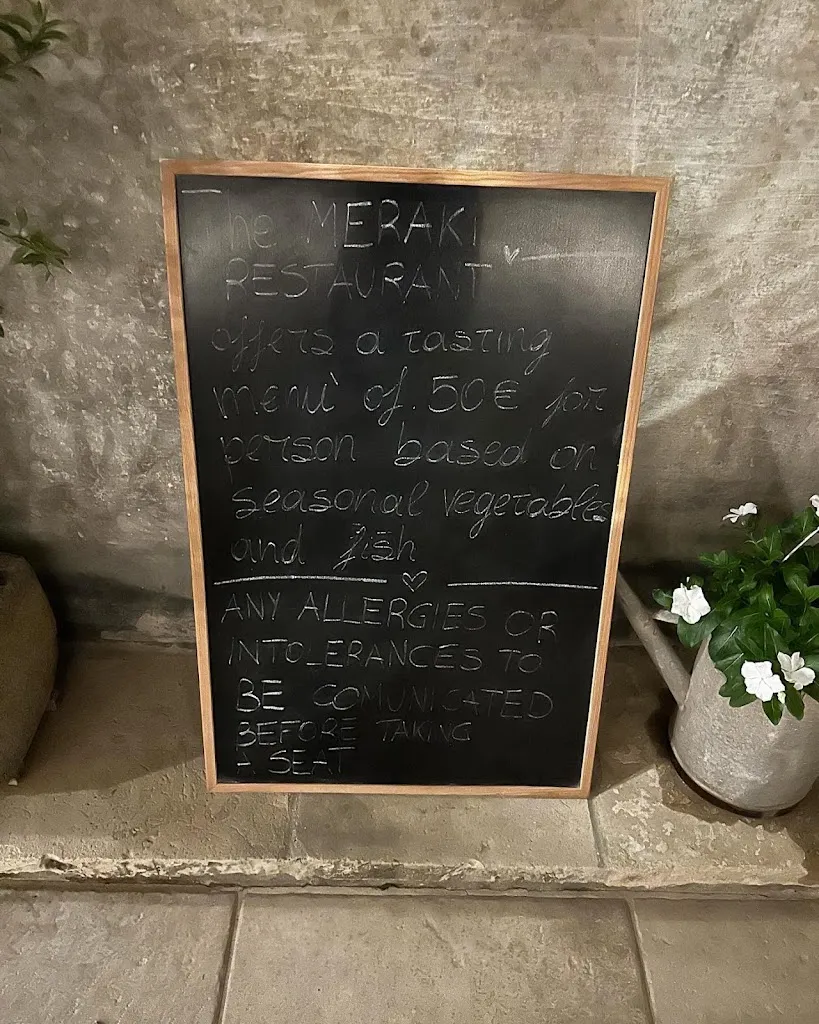 The MERAKI
RESTAURANT
offers a tasting
menù of. 50€ for
person based on
seasonal vegetables
and fish
ANY ALLERGIES OR
INTOLERANCES TO
BE COMUNICATED
BEFORE TAKING
A SEAT